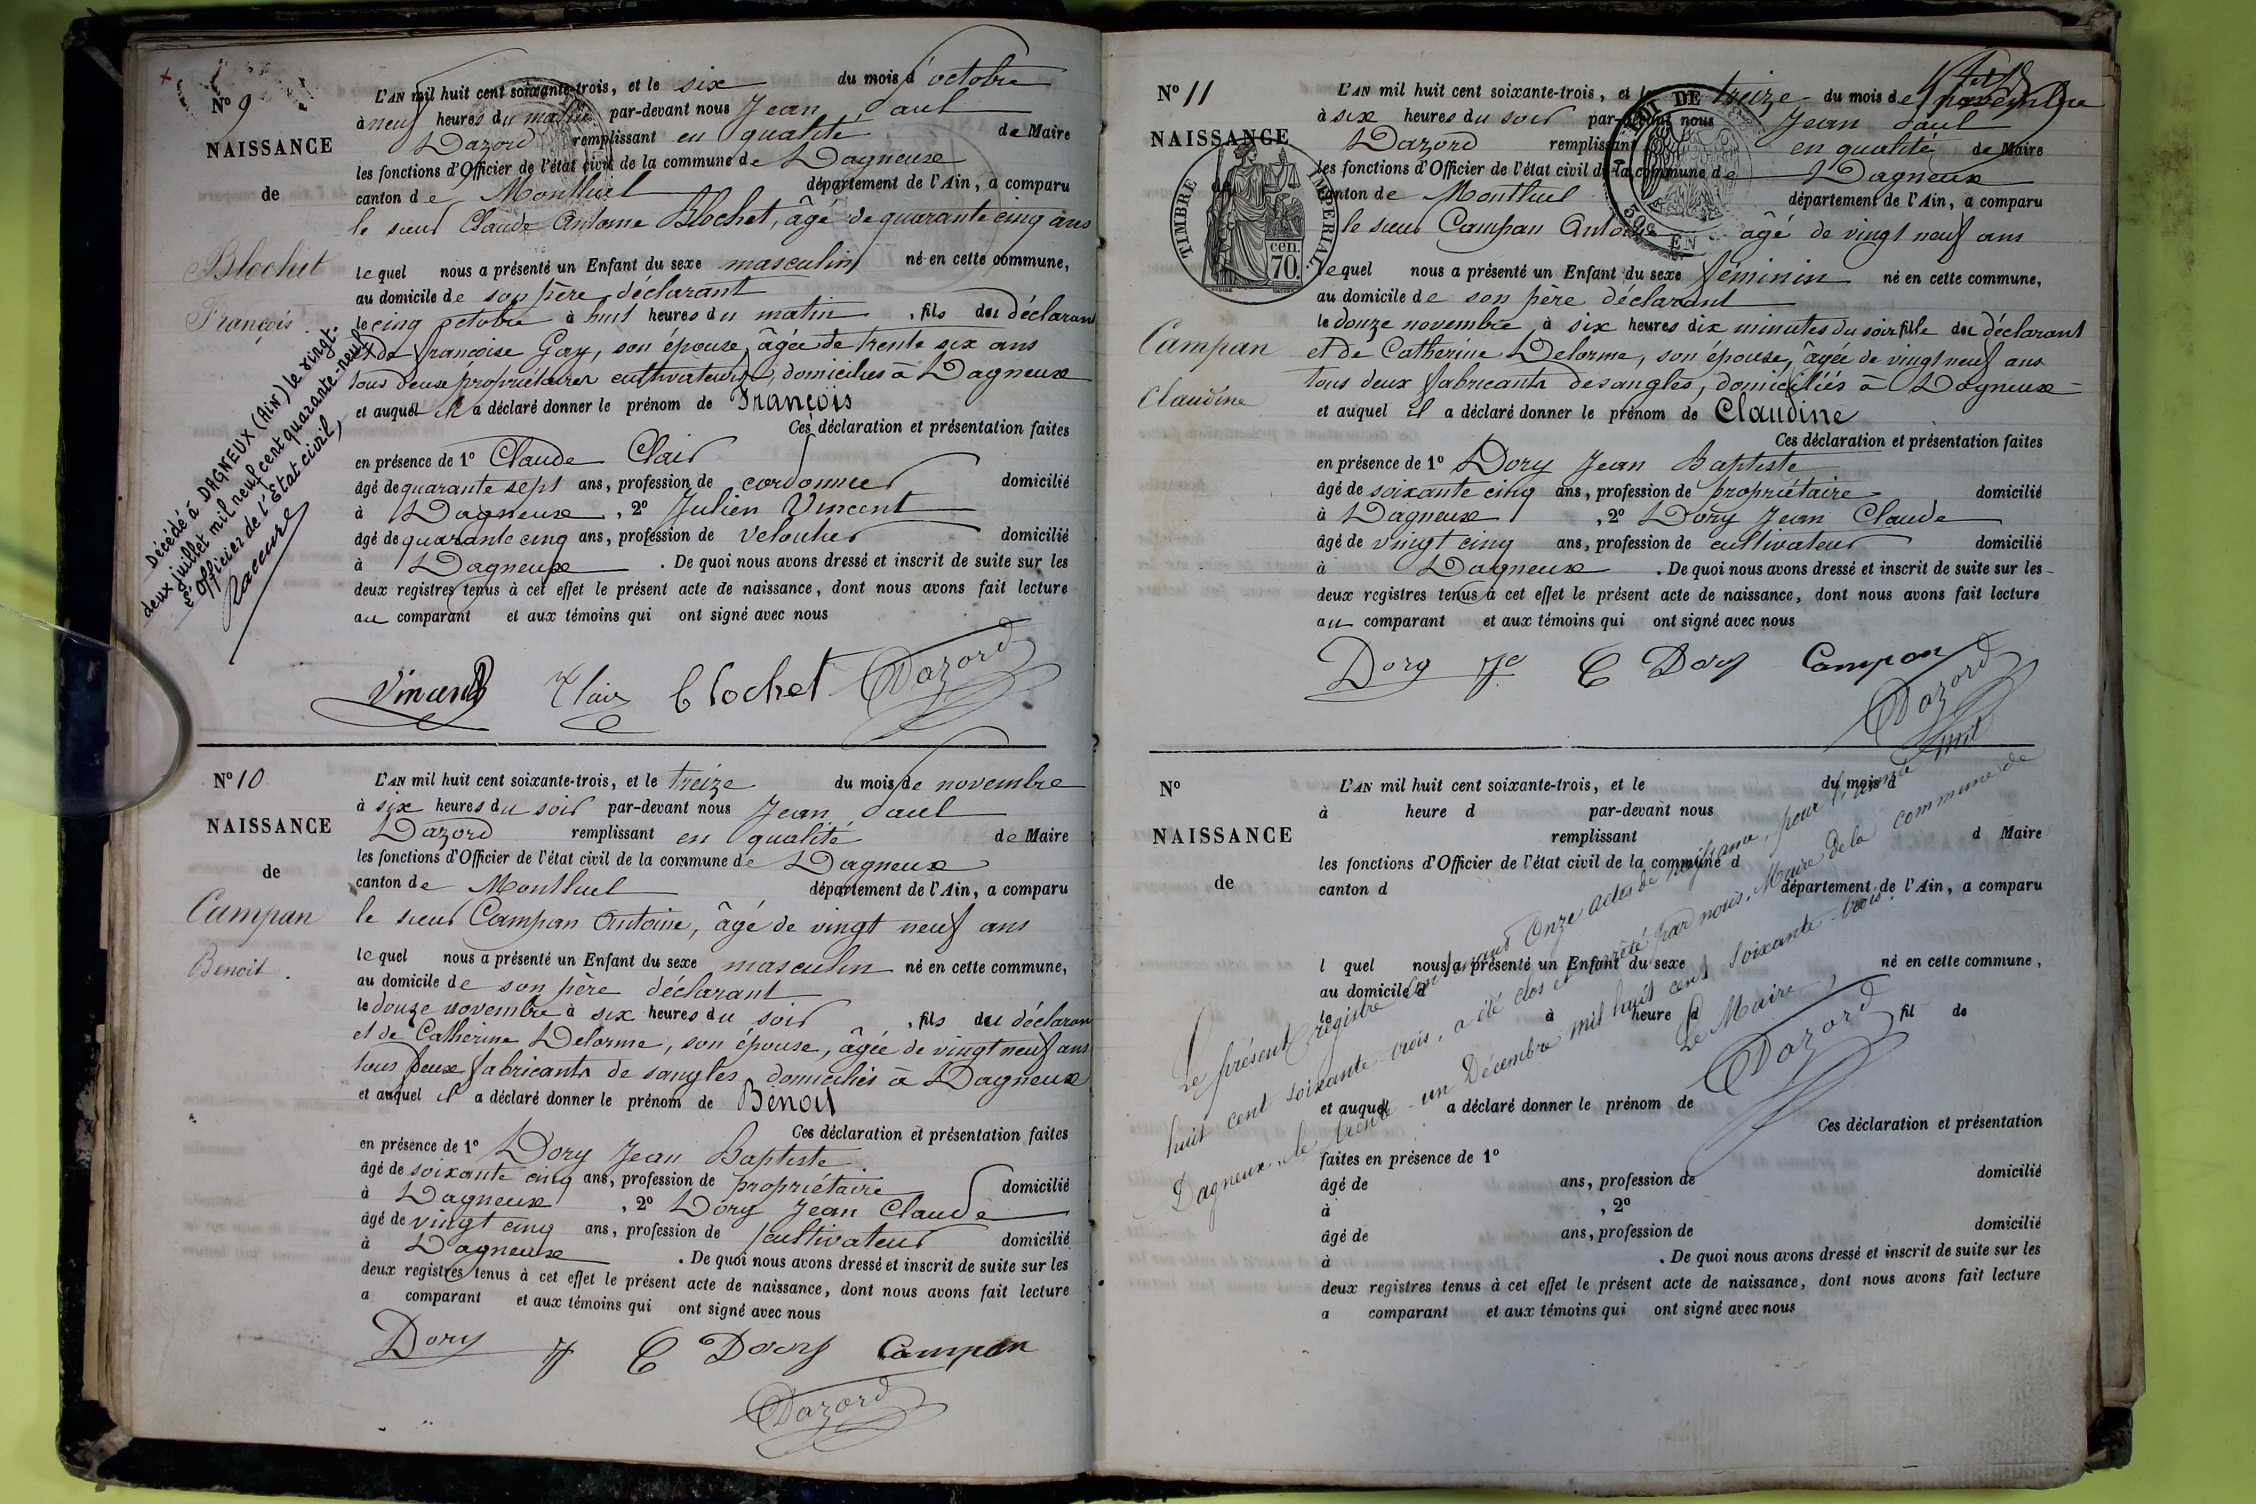 N° 9
NAISSANCE
de
Blochet
François
Décédé à DAGNEUX (Ain) le vingt-
deux juillet mil neuf cent quarante-neuf
L'Officier de l'Etat civil,
L'AN mil huit cent soixante-trois, et le six du mois d'octobre
à neuf heures du matin par-devant nous Jean Paul
Dazord remplissant en qualité de Maire
les fonctions d'Officier de l'état civil de la commune de Dagneux
canton de Montluel département de l'Ain, a comparu
le sieur Claude Antoine Blochet, âgé de quarante cinq ans
lequel nous a présenté un Enfant du sexe masculin né en cette commune,
au domicile de son père déclarant
le cinq octobre à huit heures du matin, fils du déclarant
et de Françoise Gay, son épouse, âgée de trente six ans
tous deux propriétaires cultivateurs, domiciliés à Dagneux
et auquel il a déclaré donner le prénom de François
Ces déclaration et présentation faites
en présence de 1° Claude Clair
âgé de quarante sept ans, profession de cordonnier domicilié
à Dagneux, 2° Julien Vincent
âgé de quarante cinq ans, profession de veloutier domicilié
à Dagneux. De quoi nous avons dressé et inscrit de suite sur les
deux registres tenus à cet effet le présent acte de naissance, dont nous avons fait lecture
au comparant et aux témoins qui ont signé avec nous
Vincent Clair Blochet Dazord
N° 10
NAISSANCE
de
Campan
Benoit.
L'AN mil huit cent soixante-trois, et le treize du mois de novembre
à six heures du soir par-devant nous Jean Paul
Dazord remplissant en qualité de Maire
les fonctions d'Officier de l'état civil de la commune de Dagneux
canton de Montluel département de l'Ain, a comparu
le sieur Campan Antoine, âgé de vingt neuf ans
lequel nous a présenté un Enfant du sexe masculin né en cette commune,
au domicile de son père déclarant
le douze novembre à six heures du soir, fils du déclarant
et de Catherine Delorme, son épouse, âgée de vingt neuf ans
tous deux fabricants de sangles domiciliés à Dagneux
et auquel il a déclaré donner le prénom de Benoit
Ces déclaration et présentation faites
en présence de 1° Dory Jean Baptiste
âgé de soixante cinq ans, profession de propriétaire domicilié
à Dagneux, 2° Dory Jean Claude
âgé de vingt cinq ans, profession de cultivateur domicilié
à Dagneux. De quoi nous avons dressé et inscrit de suite sur les
deux registres tenus à cet effet le présent acte de naissance, dont nous avons fait lecture
a comparant et aux témoins qui ont signé avec nous
Dory J C Dory Campan
Dazord
N° 11
NAISSANCE
TIMBRE IMPERIAL
70 cen.
Campan
Claudine
L'AN mil huit cent soixante-trois, et le treize du mois de novembre
à six heures du soir par-devant nous Jean Paul
Dazord remplissant en qualité de Maire
les fonctions d'Officier de l'état civil de la commune de Dagneux
canton de Montluel département de l'Ain, a comparu
le sieur Campan Antoine âgé de vingt neuf ans
lequel nous a présenté un Enfant du sexe féminin né en cette commune,
au domicile de son père déclarant
le douze novembre à six heures dix minutes du soir fille du déclarant
et de Catherine Delorme, son épouse, âgée de vingt neuf ans
tous deux fabricants de sangles, domiciliés à Dagneux
et auquel il a déclaré donner le prénom de Claudine
Ces déclaration et présentation faites
en présence de 1° Dory Jean Baptiste
âgé de soixante cinq ans, profession de propriétaire domicilié
à Dagneux, 2° Dory Jean Claude
âgé de vingt cinq ans, profession de cultivateur domicilié
à Dagneux. De quoi nous avons dressé et inscrit de suite sur les
deux registres tenus à cet effet le présent acte de naissance, dont nous avons fait lecture
au comparant et aux témoins qui ont signé avec nous
Dory J C Dory Campan
Dazord
N°
NAISSANCE
de
L'AN mil huit cent soixante-trois, et le du mois d
à heure d par-devant nous
remplissant d Maire
les fonctions d'Officier de l'état civil de la commune d
canton d département de l'Ain, a comparu
l quel nous a présenté un Enfant du sexe né en cette commune,
au domicile d
le à heure d fil de
et auquel a déclaré donner le prénom de
Ces déclaration et présentation
faites en présence de 1°
âgé de ans, profession de domicilié
à , 2°
âgé de ans, profession de domicilié
à . De quoi nous avons dressé et inscrit de suite sur les
deux registres tenus à cet effet le présent acte de naissance, dont nous avons fait lecture
a comparant et aux témoins qui ont signé avec nous
Le présent registre contenant onze actes de naissance, pour l'année mil
huit cent soixante-trois, a été clos et arrêté par nous, Maire de la commune de
Dagneux, le trente-un Décembre mil huit cent soixante-trois.
Le Maire,
Dazord